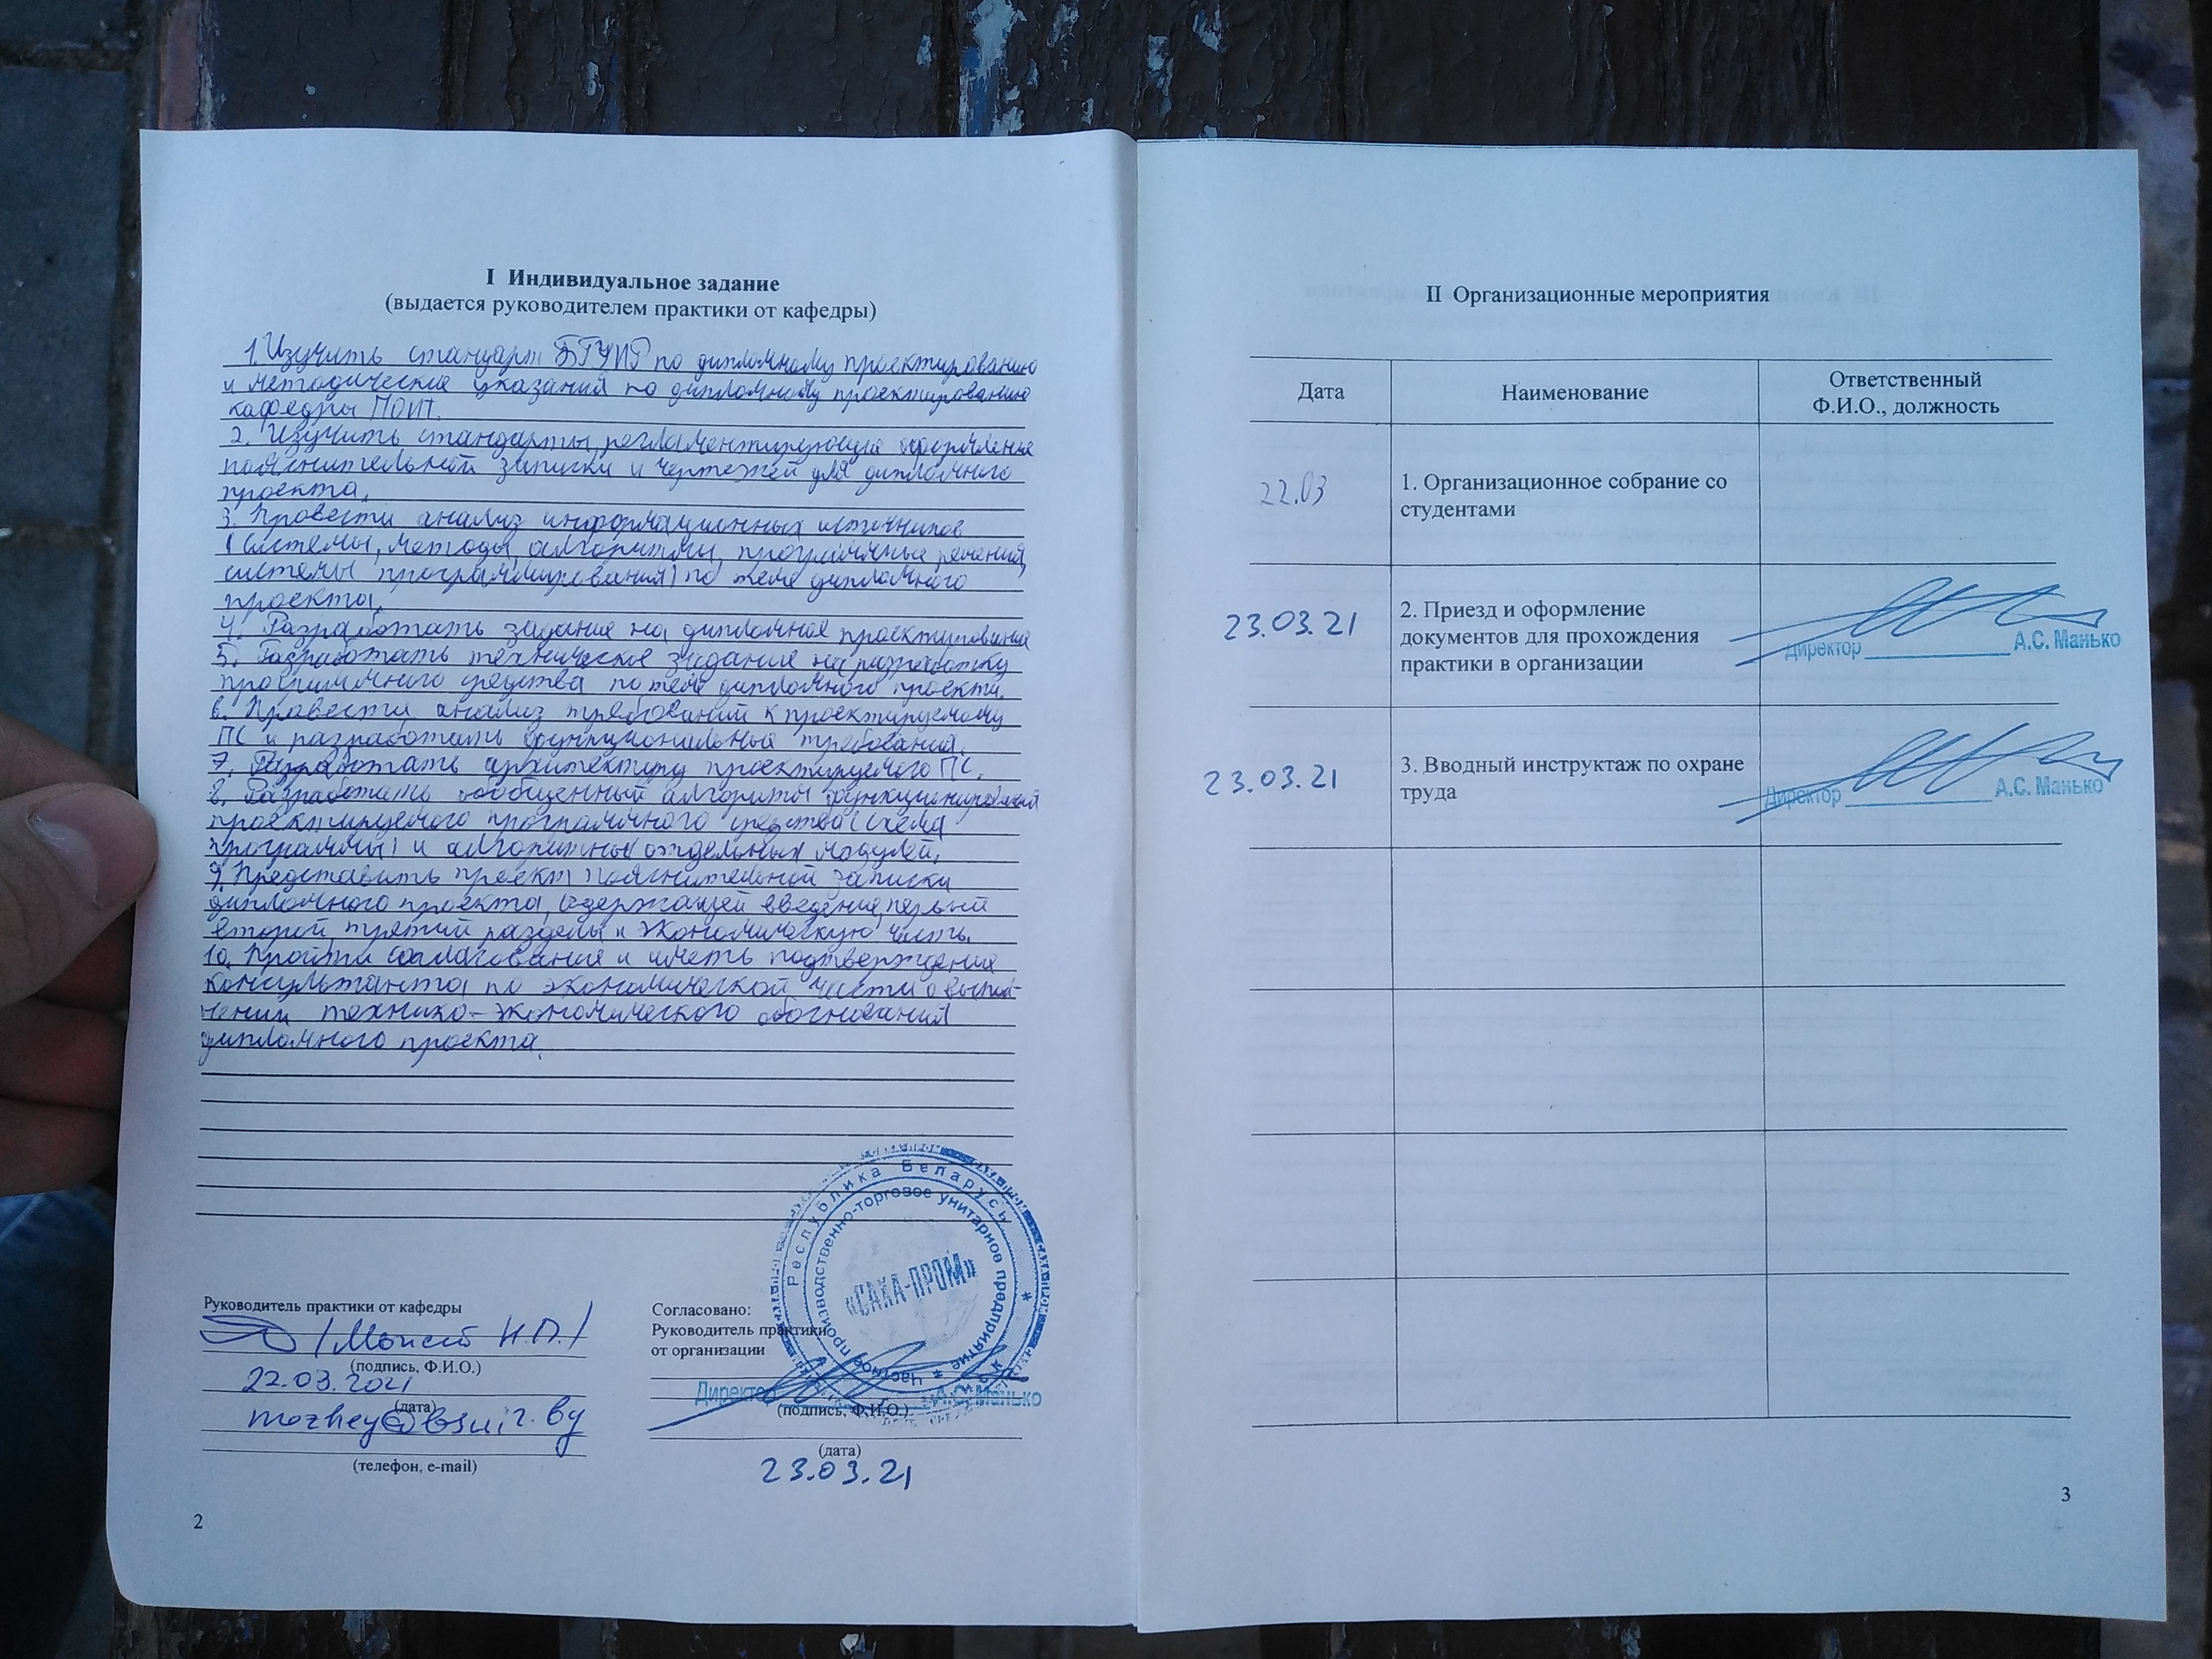 I Индивидуальное задание
(выдается руководителем практики от кафедры)
1. Изучить стандарт БГУИР по дипломному проектированию
и методические указания по дипломному проектированию
кафедры ПОИТ.
2. Изучить стандарты, регламентирующие оформление
пояснительной записки и чертежей для дипломного
проекта.
3. Провести анализ информационных источников
(системы, методы, алгоритмы, программные решения,
системы программирования) по теме дипломного
проекта.
4. Разработать задание на дипломное проектирование
5. Разработать техническое задание на разработку
программного средства по теме дипломного проекта.
6. Провести анализ требований к проектируемому
ПС и разработать функциональные требования.
7. Разработать архитектуру проектируемого ПС.
8. Разработать обобщенный алгоритм функционирования
проектируемого программного средства (схема
программы) и алгоритмы отдельных модулей.
9. Представить проект пояснительной записки
дипломного проекта, содержащей введение, первый
второй, третий разделы и экономическую часть.
10. Пройти согласование и иметь подтверждение
консультанта по экономической части о выпол-
нении технико-экономического обоснования
дипломного проекта.
Руководитель практики от кафедры
Н.П./
(подпись, Ф.И.О.)
22.03.2021
(дата)
mozhey@bsuir.by
(телефон, e-mail)
2
Согласовано:
Руководитель практики
от организации
Директор А.С. Манько
(подпись, Ф.И.О.)
(дата)
23.03.21
Республика Беларусь
Частное производственно-торговое унитарное предприятие
«САХА-ПРОМ»
II Организационные мероприятия
Дата Наименование Ответственный
Ф.И.О., должность
22.03 1. Организационное собрание со
студентами
23.03.21 2. Приезд и оформление
документов для прохождения
практики в организации
Директор А.С. Манько
23.03.21 3. Вводный инструктаж по охране
труда
Директор А.С. Манько
3